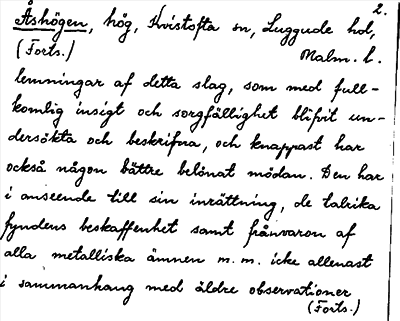 2.
Åshögen, hög, Kvistofta sn, Luggude hd,
(Forts.) Malm. l.
lemningar af detta slag, som med full-
komlig insigt och sorgfällighet blifvit un-
dersökta och beskrifna, och knappast har
också någon bättre belönat mödan. Den har
i anseende till sin inrättning, de talrika
fyndens beskaffenhet samt frånvaron af
alla metalliska ämnen m. m. icke allenast
i sammanhang med äldre observationer
(Forts.)